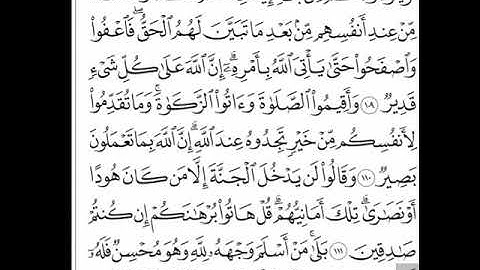 مِّنْ عِندِ أَنفُسِهِم مِّنۢ بَعْدِ مَا تَبَيَّنَ لَهُمُ ٱلْحَقُّ ۖ فَٱعْفُوا۟
وَٱصْفَحُوا۟ حَتَّىٰ يَأْتِىَ ٱللَّهُ بِأَمْرِهِۦٓ ۗ إِنَّ ٱللَّهَ عَلَىٰ كُلِّ شَىْءٍ
قَدِيرٌ ١٠٩ وَأَقِيمُوا۟ ٱلصَّلَوٰةَ وَءَاتُوا۟ ٱلزَّكَوٰةَ ۚ وَمَا تُقَدِّمُوا۟
لِأَنفُسِكُم مِّنْ خَيْرٍ تَجِدُوهُ عِندَ ٱللَّهِ ۗ إِنَّ ٱللَّهَ بِمَا تَعْمَلُونَ
بَصِيرٌ ١١٠ وَقَالُوا۟ لَن يَدْخُلَ ٱلْجَنَّةَ إِلَّا مَن كَانَ هُودًا
أَوْ نَصَٰرَىٰ ۗ تِلْكَ أَمَانِيُّهُمْ ۗ قُلْ هَاتُوا۟ بُرْهَٰنَكُمْ إِن كُنتُمْ
صَٰدِقِينَ ١١١ بَلَىٰ مَنْ أَسْلَمَ وَجْهَهُۥ لِلَّهِ وَهُوَ مُحْسِنٌ فَلَهُۥٓ